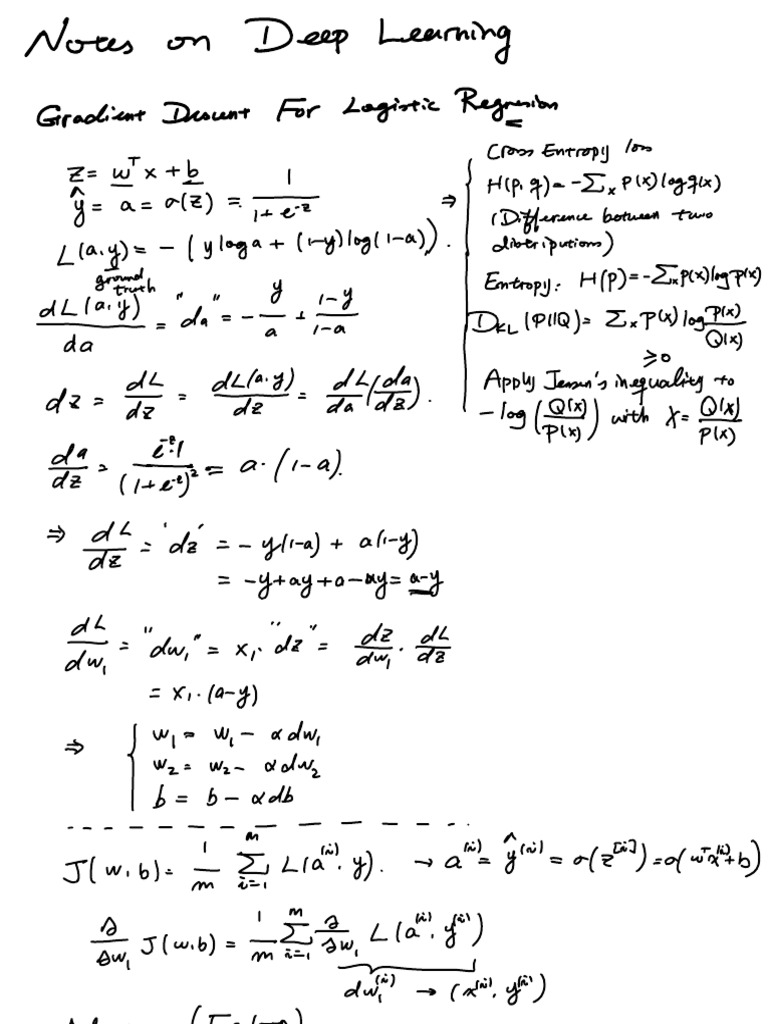 Notes on Deep Learning
Gradient Descent For Logistic Regression
z = wᵀx + b
ŷ = a = σ(z) = 1/(1+e^{-z})
L(a,y) = -(y log a + (1-y) log(1-a)).
ground truth
dL(a,y)/da = "da" = -y/a + (1-y)/(1-a)
dz = dL/dz = dL(a,y)/dz = dL/da (da/dz).
da/dz = e^{-z}·1/(1+e^{-z})² = a·(1-a).
⇒ dL/dz = 'dz' = -y(1-a) + a(1-y)
= -y+ay+a-ay = a-y
dL/dw₁ = "dw₁" = x₁·"dz" = dz/dw₁ · dL/dz
= x₁·(a-y)
⇒ { w₁ = w₁ - αdw₁
w₂ = w₂ - αdw₂
b = b - αdb
⇒ { Cross Entropy loss
H(p,q) = -Σₓ P(x) log q(x)
(Difference between two
distriputions)
Entropy: H(p) = -Σₓ p(x) log p(x)
D_KL(P||Q) = Σₓ P(x) log P(x)/Q(x)
≥0
Apply Jensen's inequality to
-log(Q(x)/P(x)) with X = Q(x)/P(x)
J(w,b) = 1/m Σ_{i=1}^{m} L(a^{(i)}, y). → a^{(i)} = ŷ^{(i)} = σ(z^{[i]}) = σ(wᵀx^{(i)}+b)
∂/∂w₁ J(w,b) = 1/m Σ_{i=1}^{m} ∂/∂w₁ L(a^{(i)}, y^{(i)})
dw₁^{(i)} → (x^{(i)}, y^{(i)})